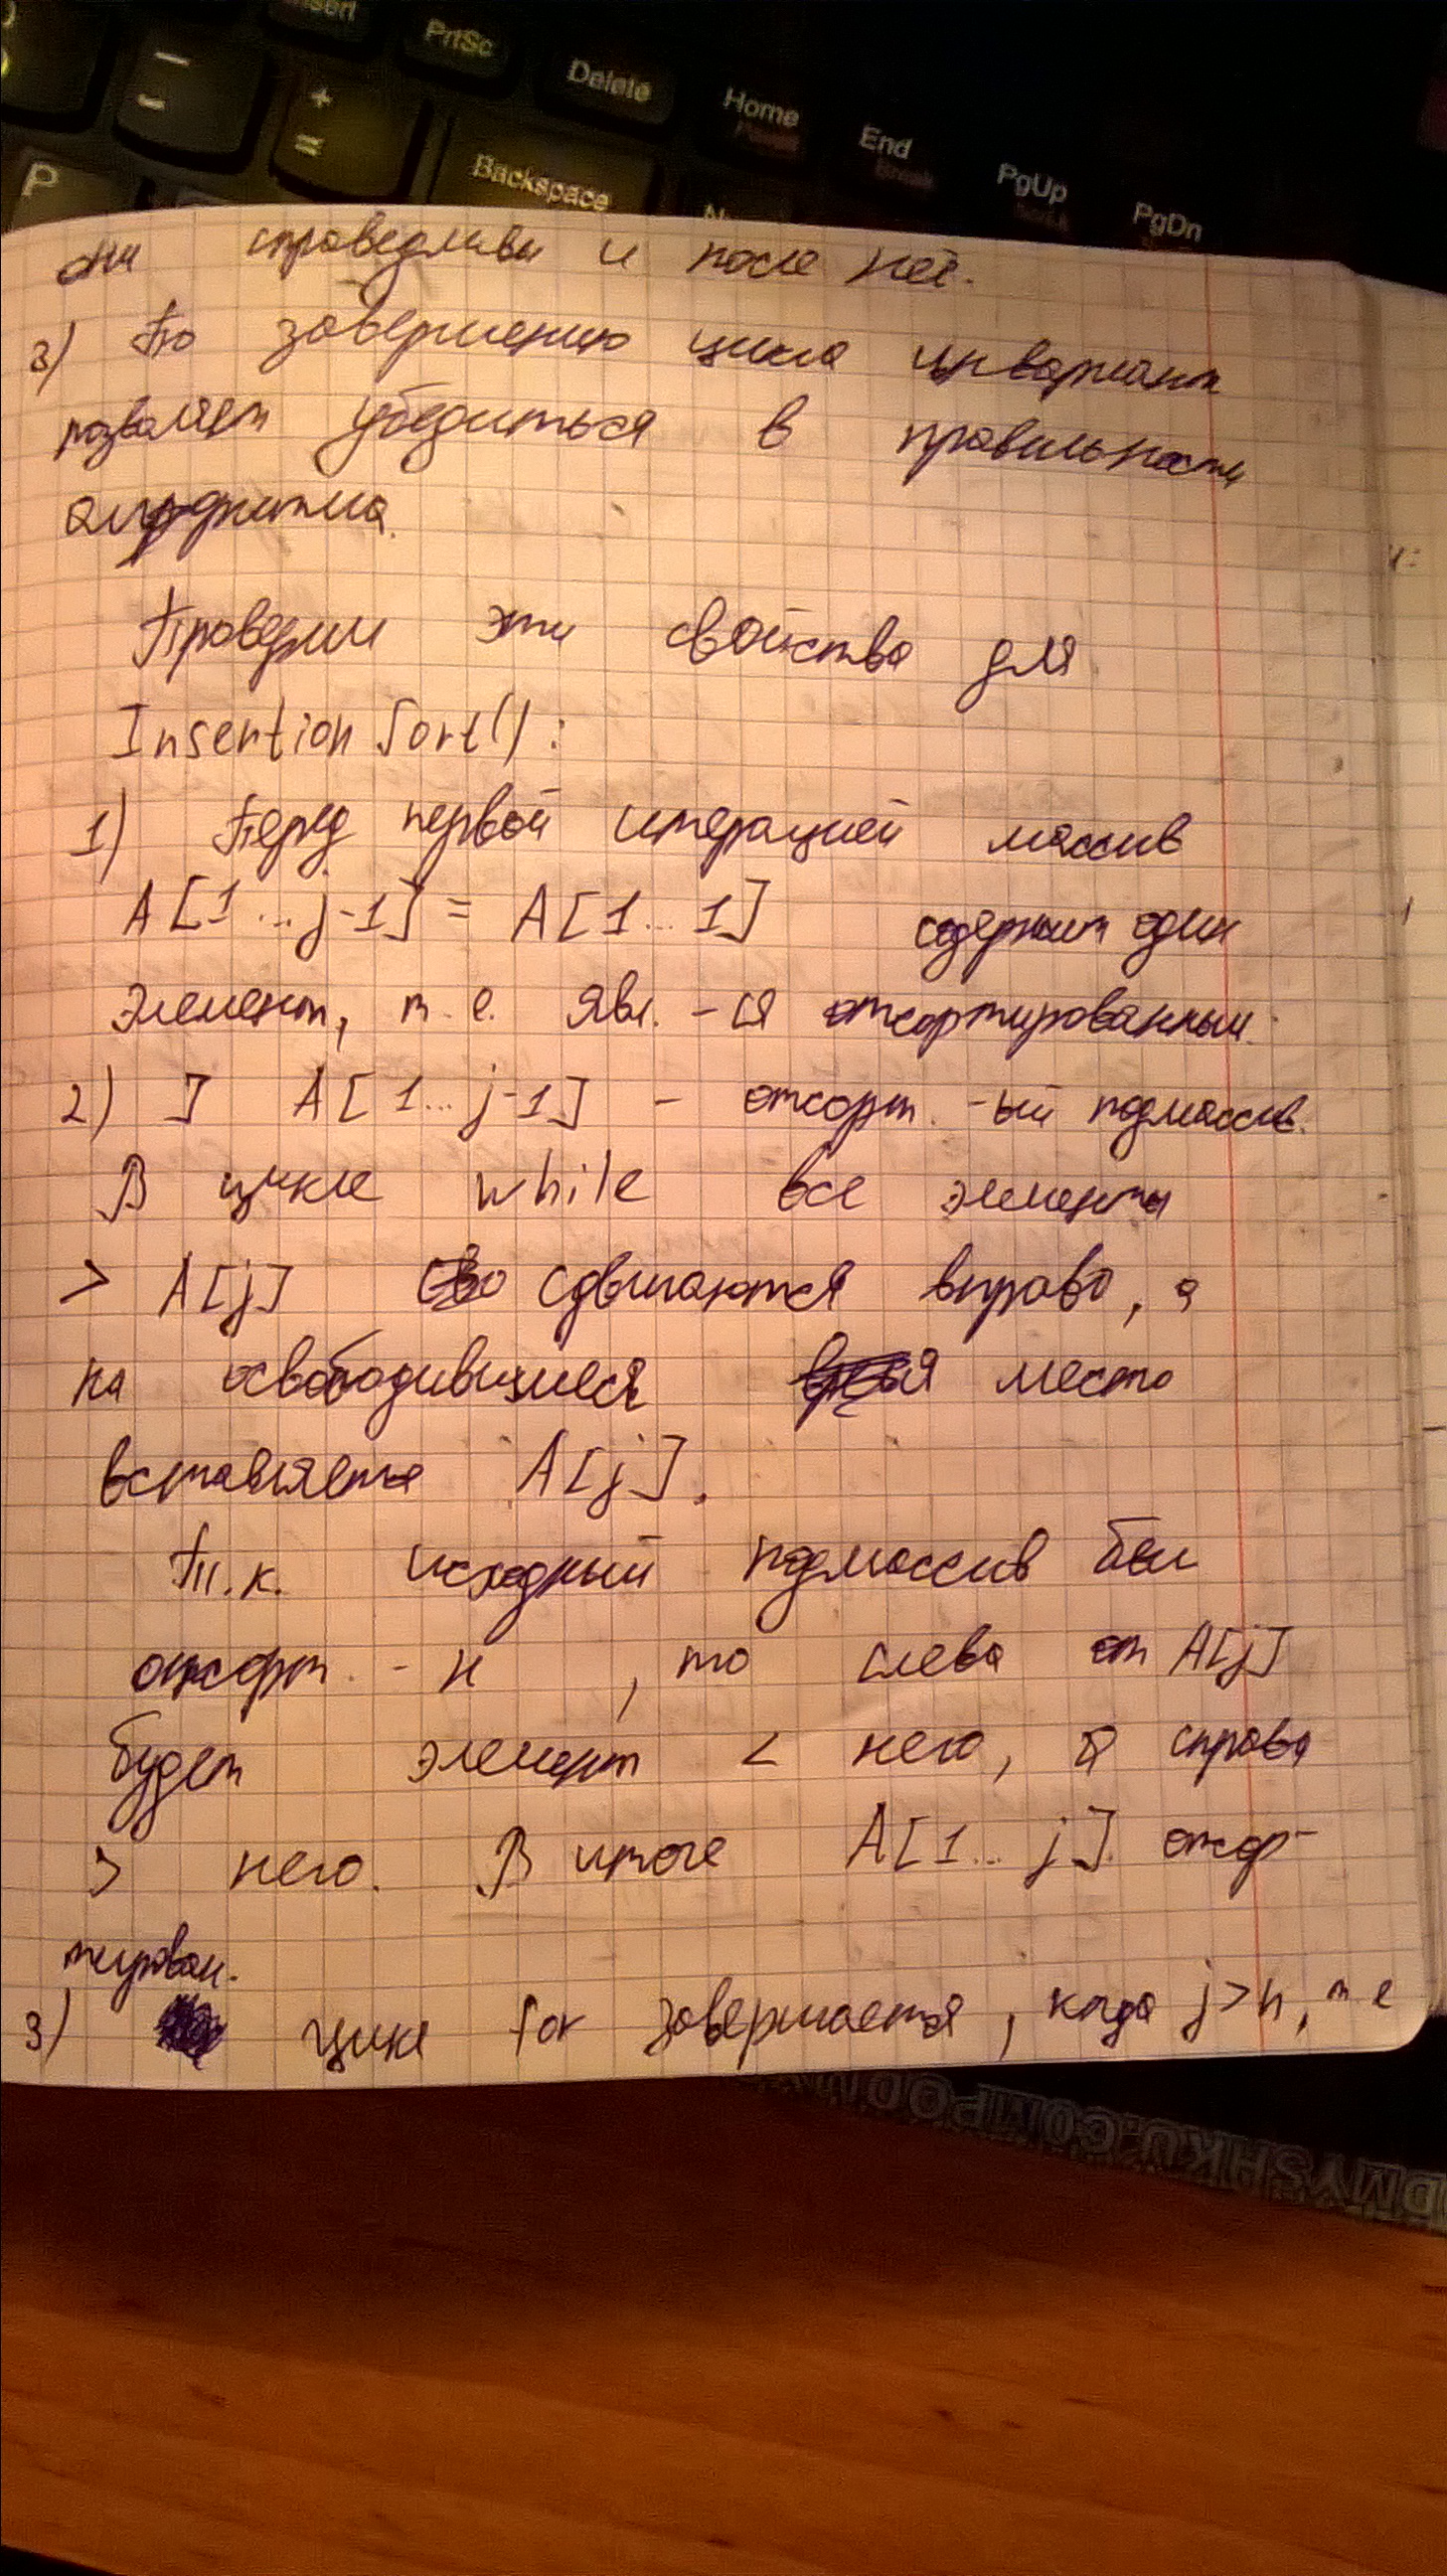 Insert
PrtSc
Delete
Home
End
PgUp
PgDn
P
Backspace
они справедливы и после неё.
3) По завершению цикла инвариант
позволяет убедиться в правильности
алгоритма.
Проверим эти свойства для
InsertionSort():
1) Перед первой итерацией массив
A[1...j-1] = A[1...1] содержит один
элемент, т.е. явл.-ся отсортированным.
2) ] A[1...j-1] - отсорт.-ый подмассив.
В цикле while все элементы
> A[j] сдвигаются вправо, а
на освободившиеся место
вставляется A[j].
Т.к. исходный подмассив был
отсорт.-н, то слева от A[j]
будет элемент < него, а справа
> него. В итоге A[1...j] отсор-
тирован.
3) Цикл for завершается, когда j>n, т е